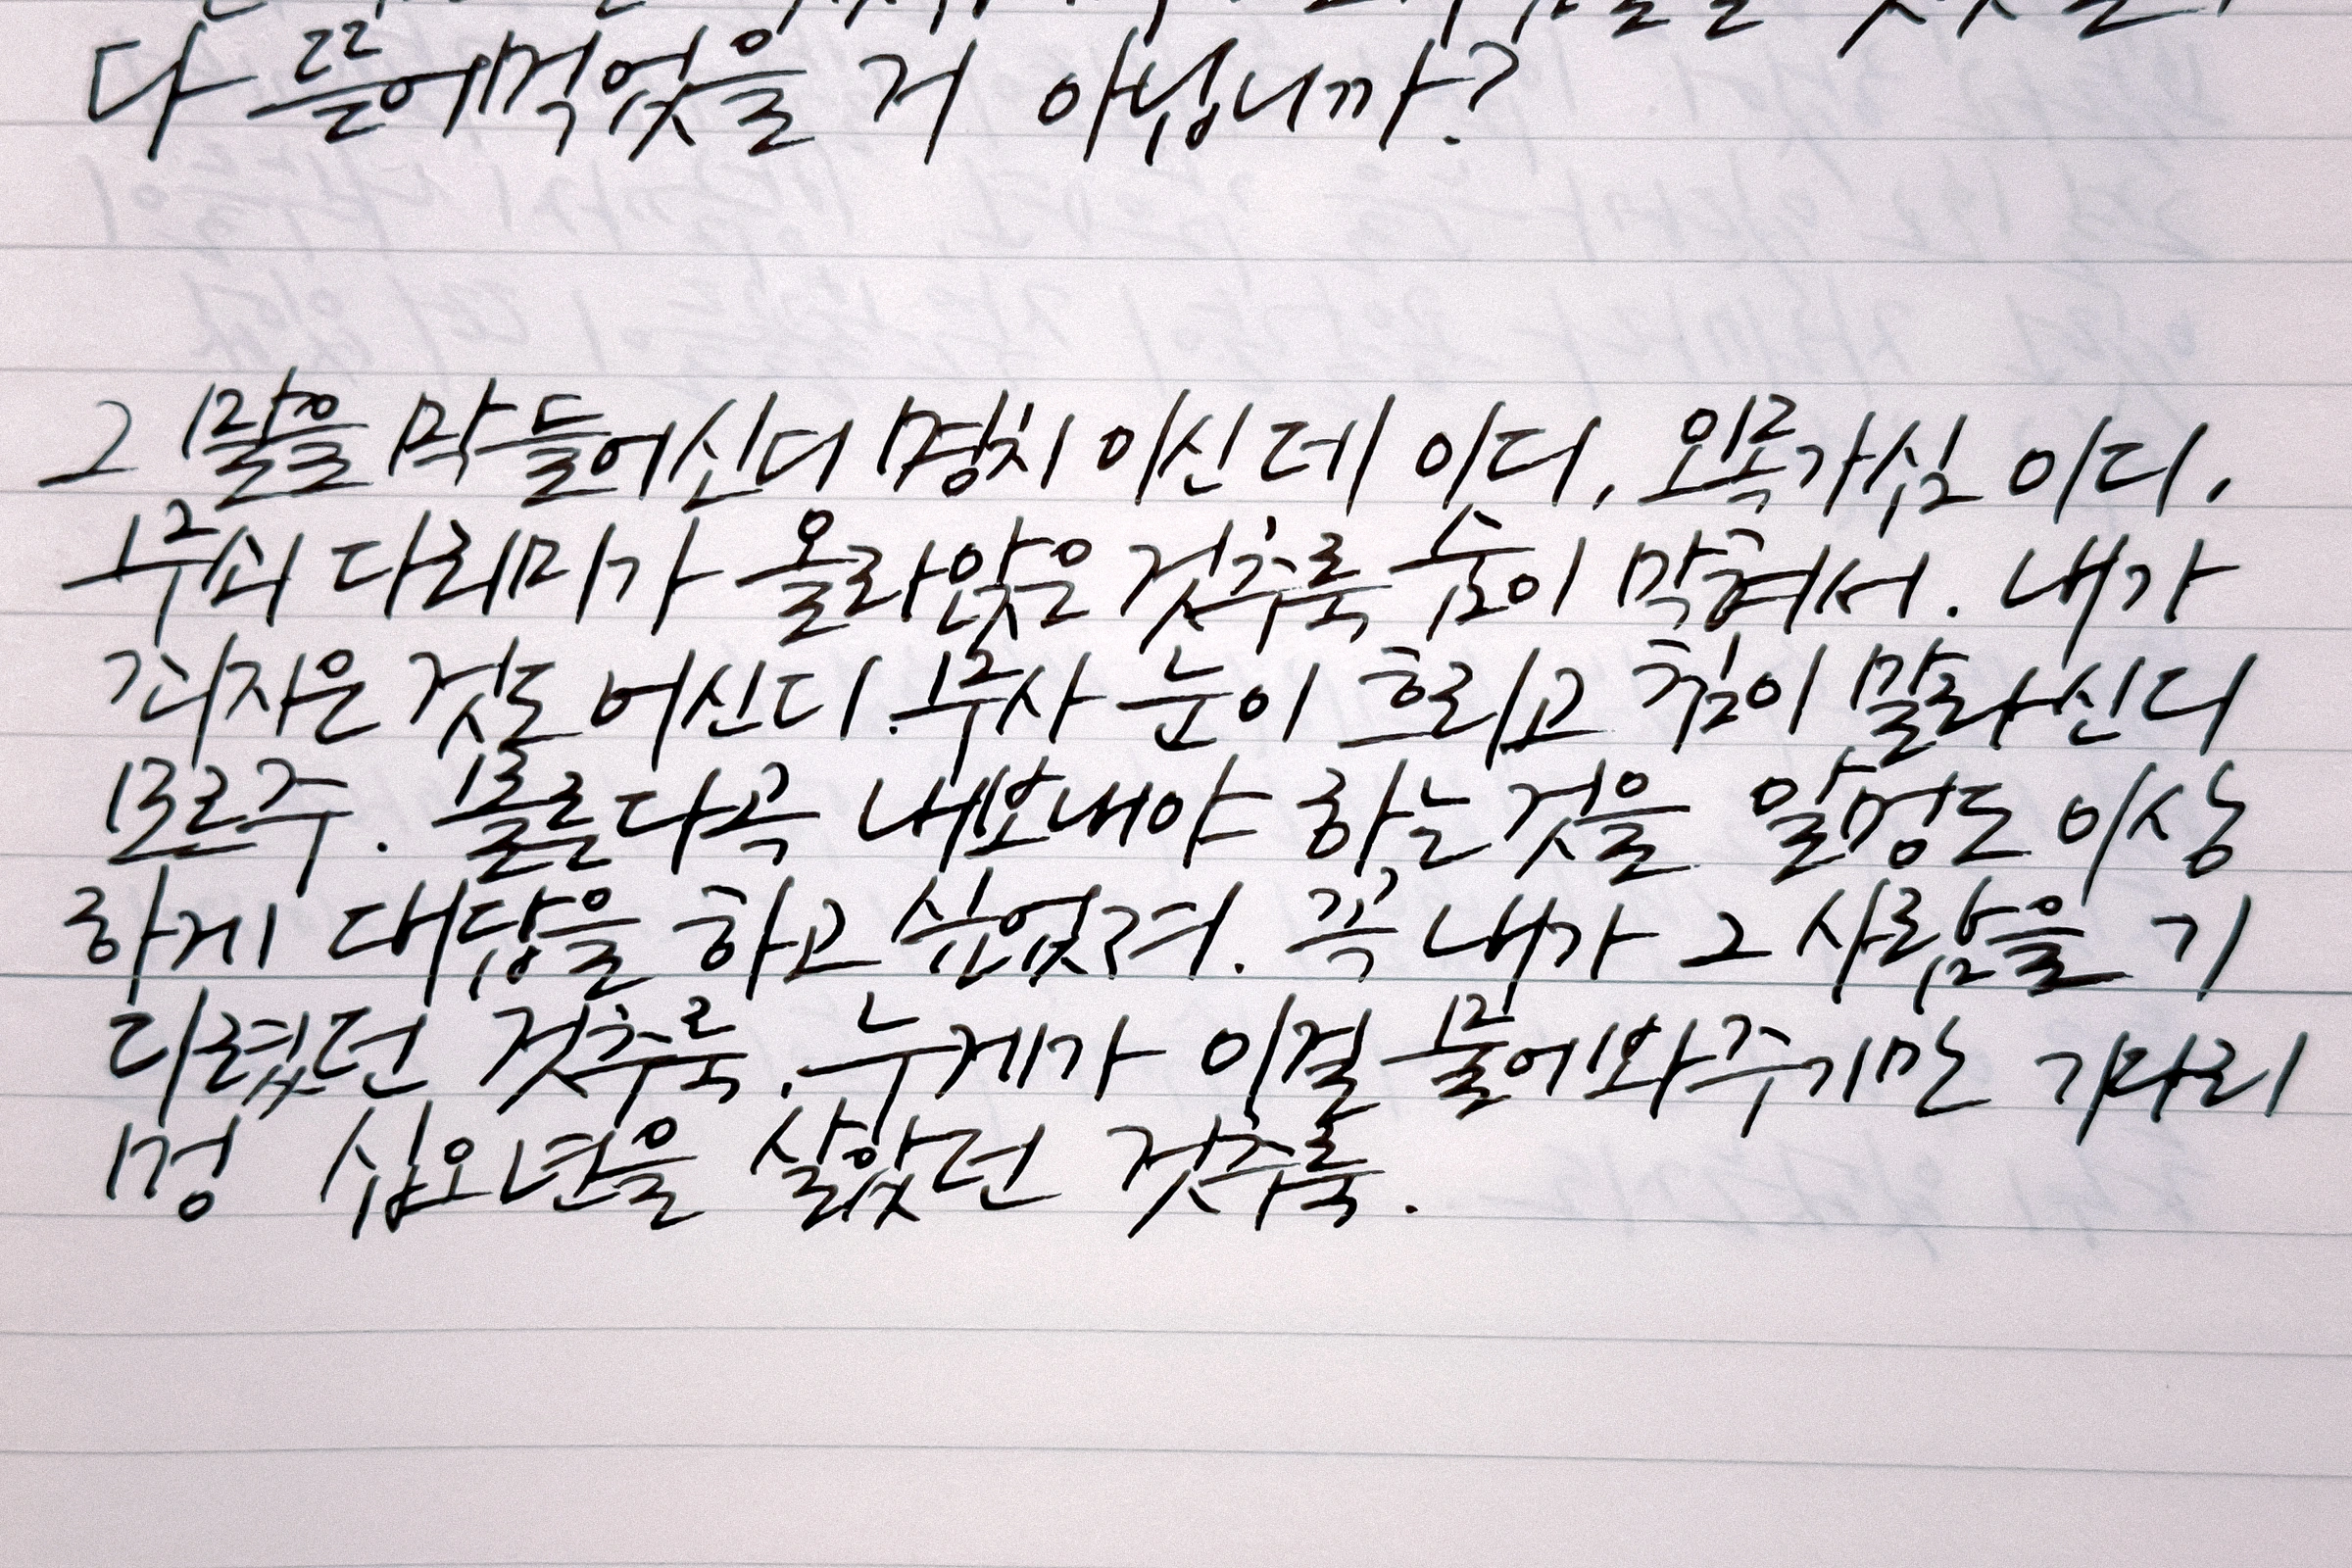 다 뜯어먹었을 거 아닙니까?
그 말을 막 들어신디 명치 이신 데 이디, 오목가심 이디,
무쇠 다리미가 올라앉은 것추룩 숨이 막혀서. 내가
죄지은 것도 어신디. 무사 눈이 흐리고 침이 말라신디
모르주. 몰른다곡 내보내야 하는 것을 알멍도 이상
하게 대답을 하고 싶었져. 꼭 내가 그 사람을 기
다렸던 것추룩. 누게가 이걸 물어와주기만 기다리
멍 십오년을 살았던 것추룩.